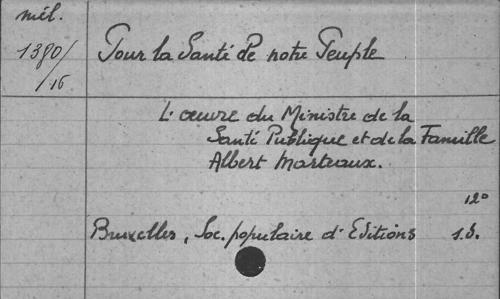 mél.
1380/
/16
Pour la Santé de notre Peuple
L'œuvre du Ministre de la
Santé Publique et de la Famille
Albert Marteaux.
12°
Bruxelles, Soc. populaire d'Editions s.d.